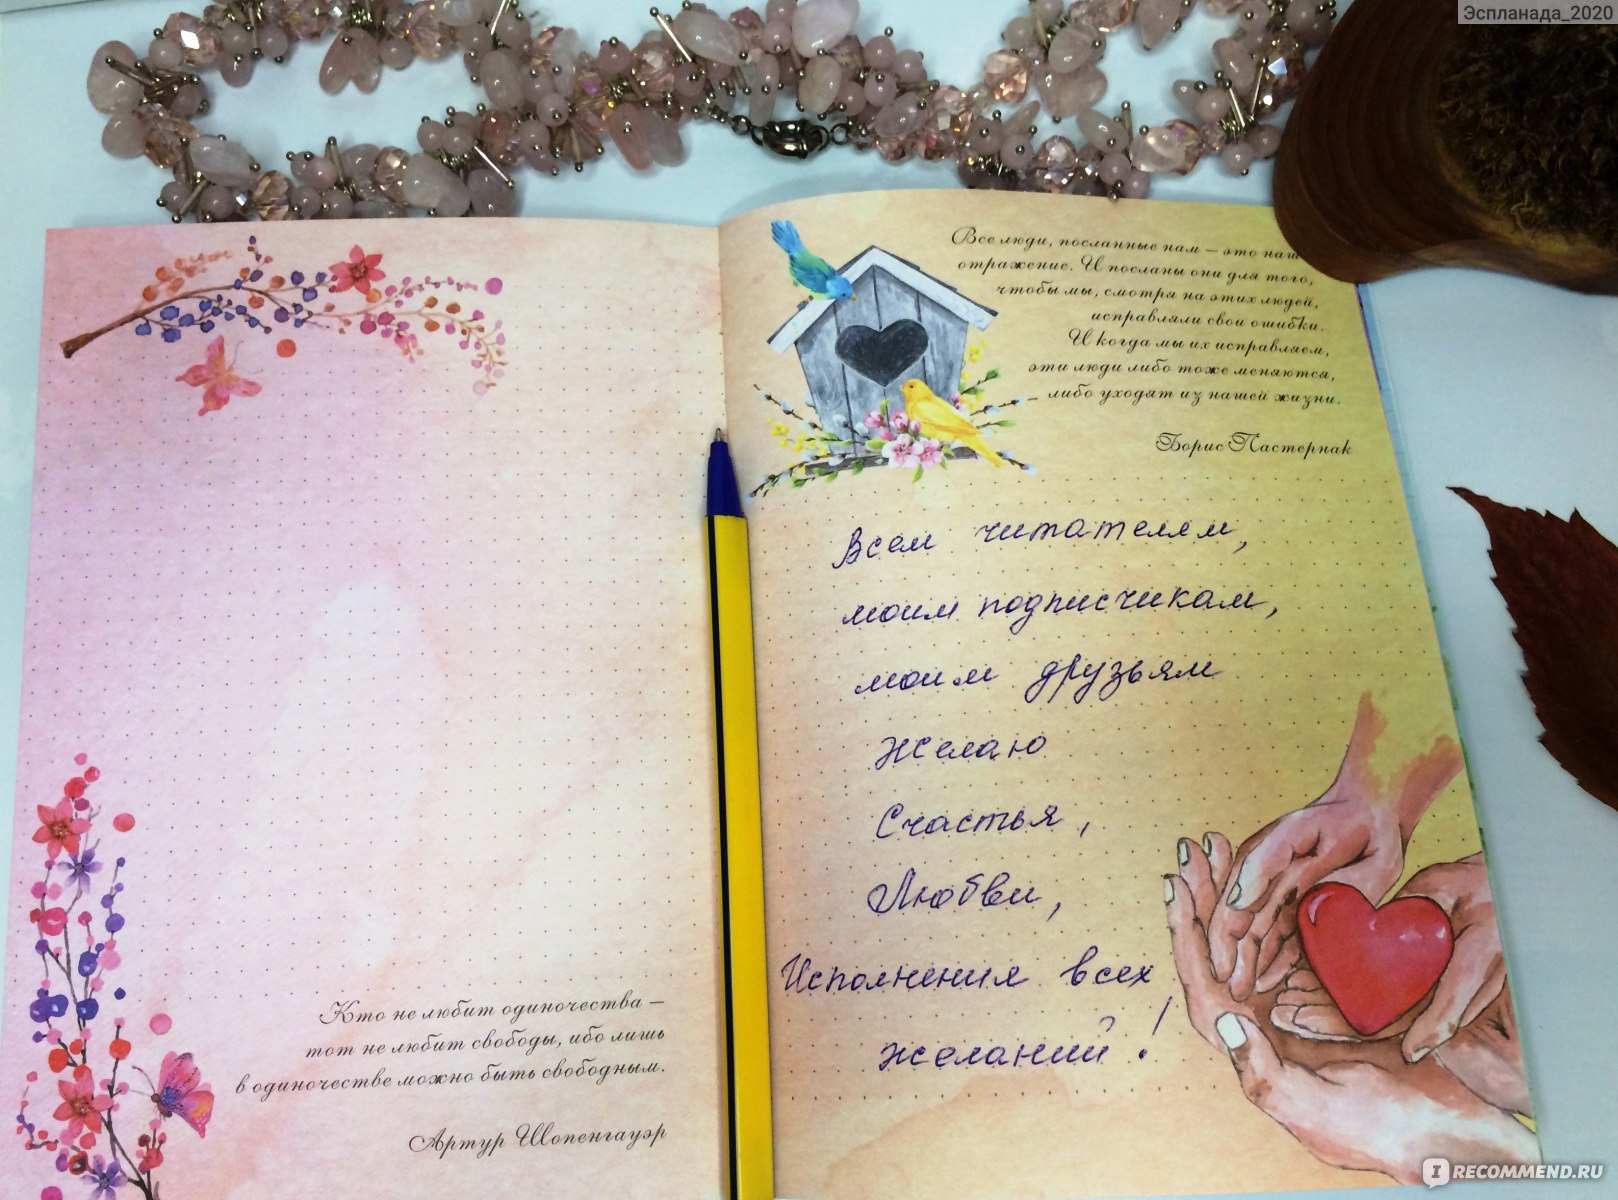 Эспланада_2020
Кто не любит одиночества –
тот не любит свободы, ибо лишь
в одиночестве можно быть свободным.
Артур Шопенгауэр
Все люди, посланные нам – это наше
отражение. И посланы они для того,
чтобы мы, смотря на этих людей,
исправляли свои ошибки.
И когда мы их исправляем,
эти люди либо тоже меняются,
либо уходят из нашей жизни.
Борис Пастернак
Всем читателям,
моим подписчикам,
моим друзьям
желаю
Счастья,
Любви,
Исполнения всех
желаний!
IRECOMMEND.RU